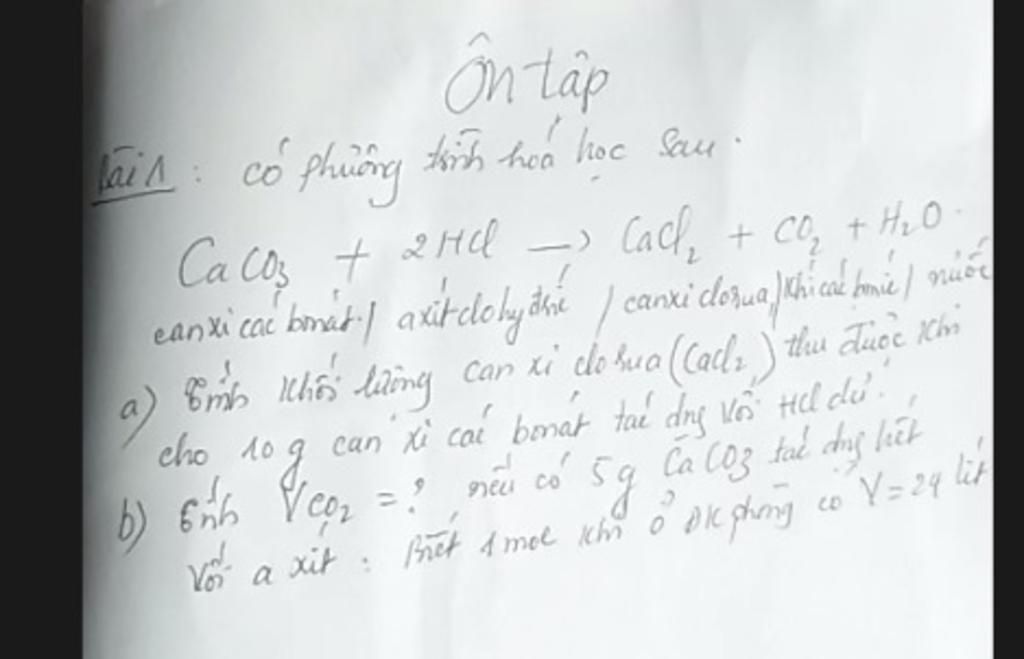 Ôn tập
Bài 1 : có phương trình hoá học sau.
CaCO3 + 2HCl → CaCl2 + CO2 + H2O.
canxi các bonát / axít clohyđric / canxi clorua / khí cácbonic / nước
a) Tính khối lượng can xi clorua (CaCl2) thu được khi
cho 10 g can xi các bonát tác dụng với HCl dư.
b) Tính VCO2 = ? nếu có 5g CaCO3 tác dụng hết
với a xít : Biết 1 mol khí ở ĐK phòng có V = 24 lít